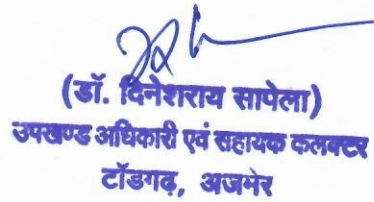 (डॉ. दिनेशराय सापेला)
उपखण्ड अधिकारी एवं सहायक कलक्टर
टॉडगढ़, अजमेर